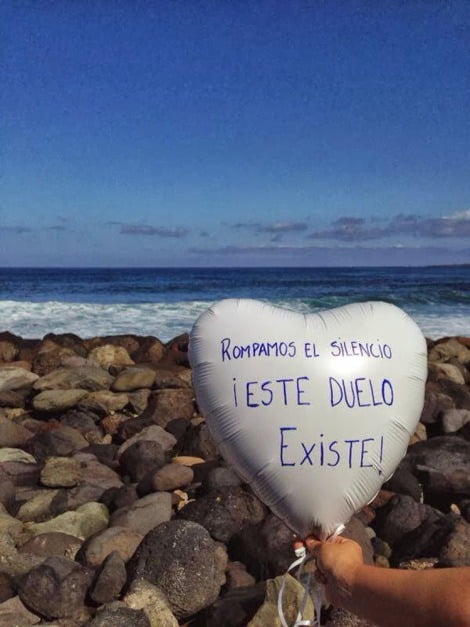 ROMPAMOS EL SILENCIO
¡ESTE DUELO
EXISTE!